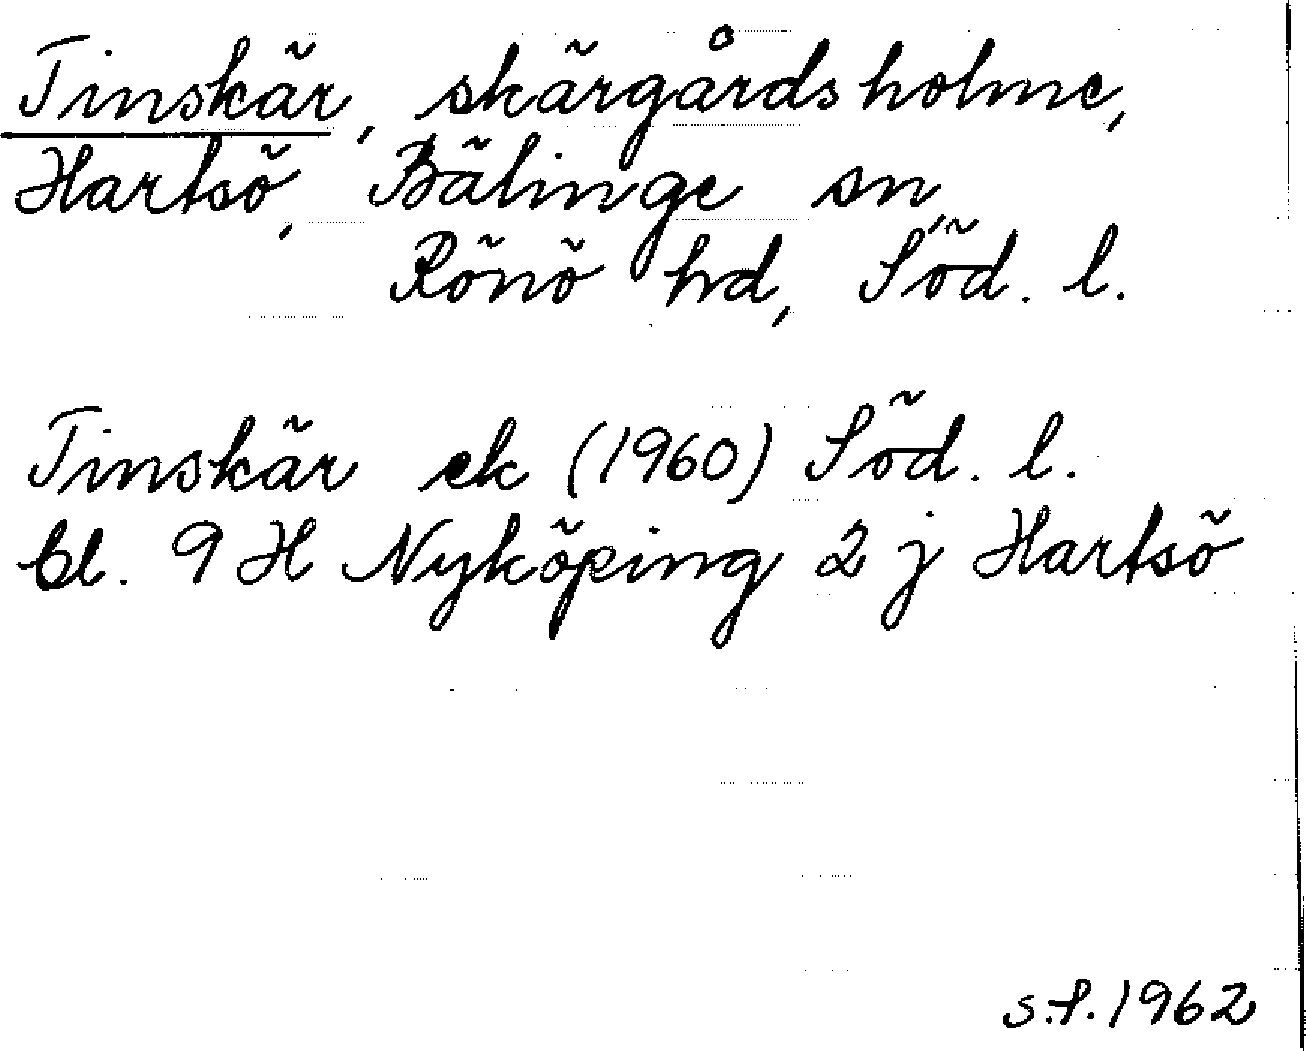 Tinskär, skärgårdsholme,
Hartsö, Bälinge sn,
Rönö hd, Söd. l.
Tinskär ek (1960) Söd. l.
bl. 9 H Nyköping 2 j Hartsö
s.f. 1962